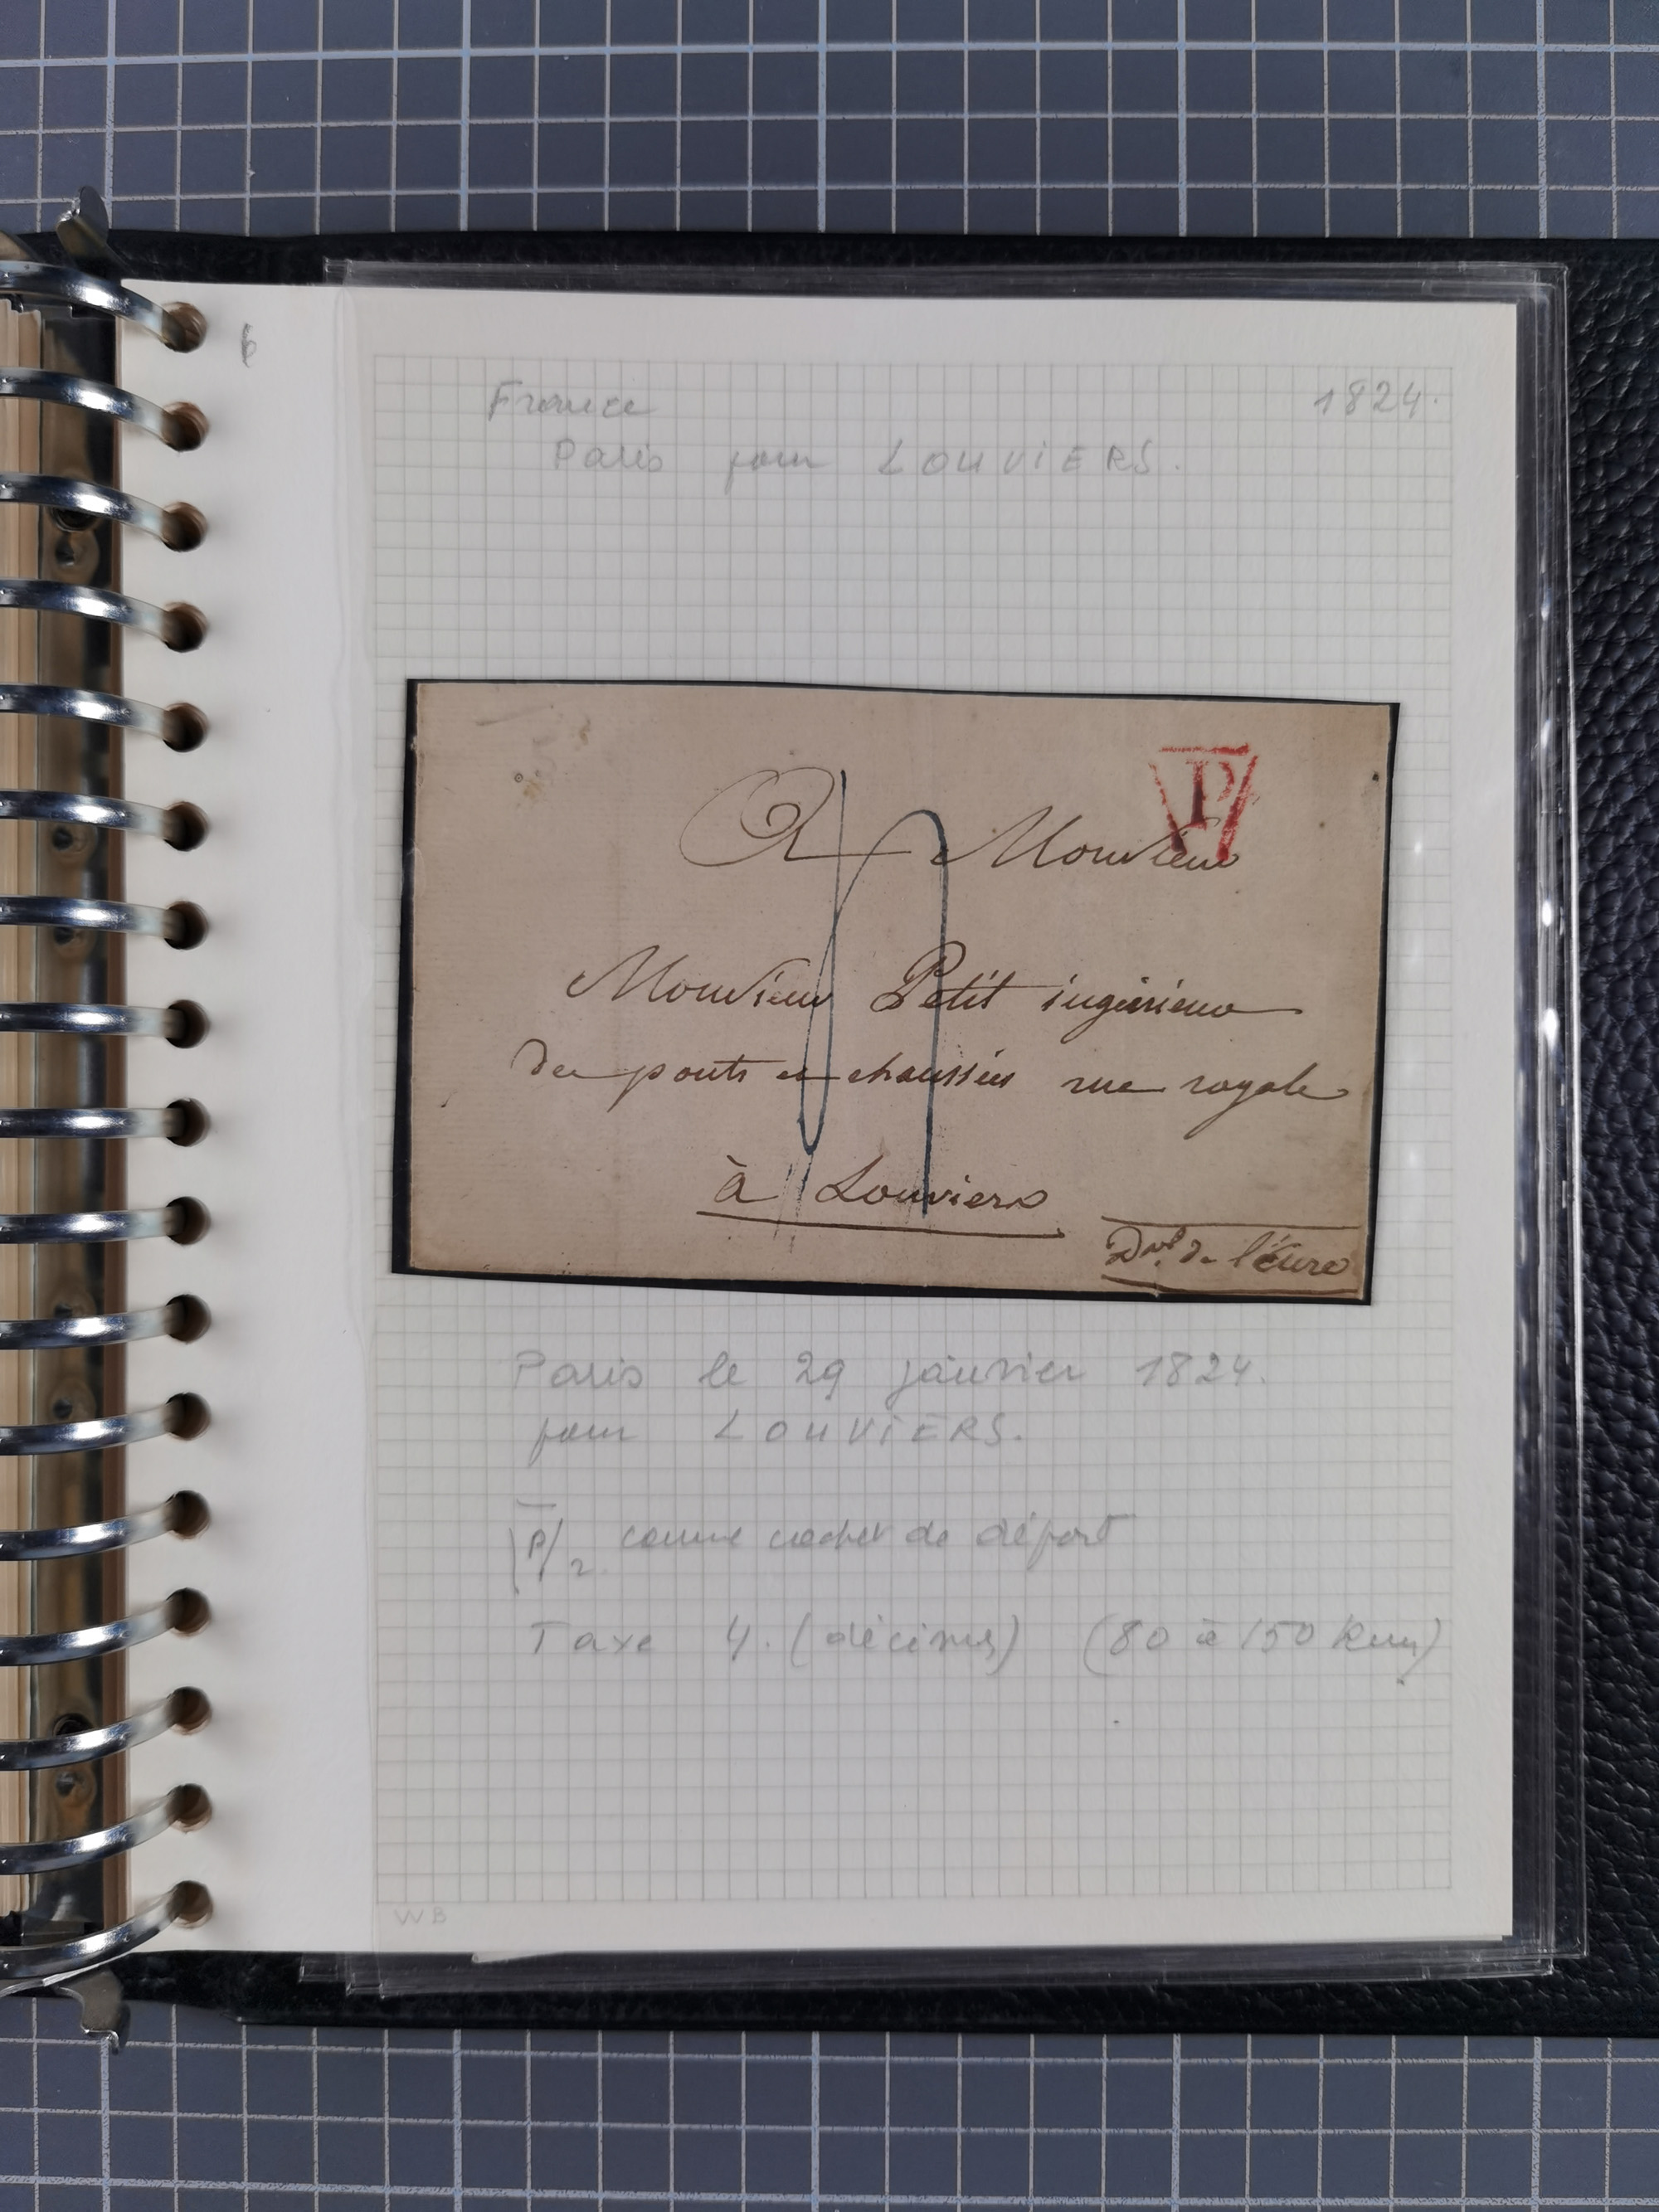 6
France 1824.
Paris pour LOUVIERS.
P
A Monsieur
4
Monsieur Petit ingénieur
des ponts et chaussées rue royale
à Louviers
Dpt. de l'Eure
Paris le 29 janvier 1824.
pour LOUVIERS.
P/2. comme cachet de départ
Taxe 4. (décimes) (80 à 150 Km)
WB